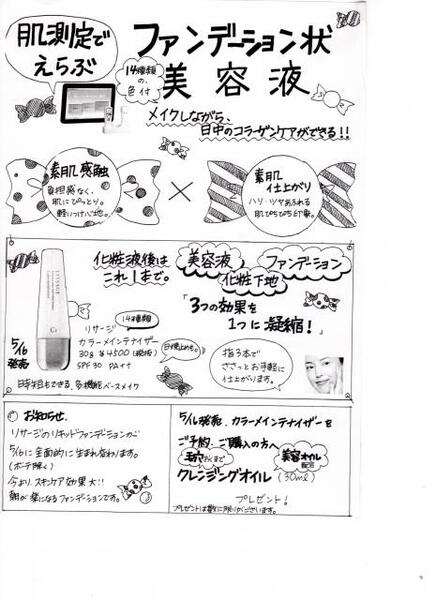 肌測定で
えらぶ
ファンデーション状
美容液
14種類
の、
色付
メイクしながら、
日中のコラーゲンケアができる!!
素肌感触
負担感なく、
肌にぴったり。
軽いつけ心地。
×
素肌
仕上がり
ハリ・ツヤあふれる
肌ぴちぴち印象。
化粧液後は
これ1本で。
美容液
ファンデーション
化粧下地
「3つの効果を
1つに凝縮!」
5/16
発売
14種類
リサージ
カラーメインテナイザー
30g ¥4500(税抜)
SPF30 PA++
日焼止めも。
日やけ止めもできる、多機能ベースメイク
指3本で
ささっとお手軽に
仕上がります。
お知らせ.
リサージのリキッドファンデーションが
5/16に全面的に生まれ変わります。
(ボーテ除く)
今より、スキンケア効果大!!
朝が楽になるファンデーションです。
5/16発売、カラーメインテナイザーを
ご予約、ご購入の方へ
毛穴
クレンジングオイル
美容オイル
配合
(30ml)
プレゼント!
プレゼントは数に限りがございます。